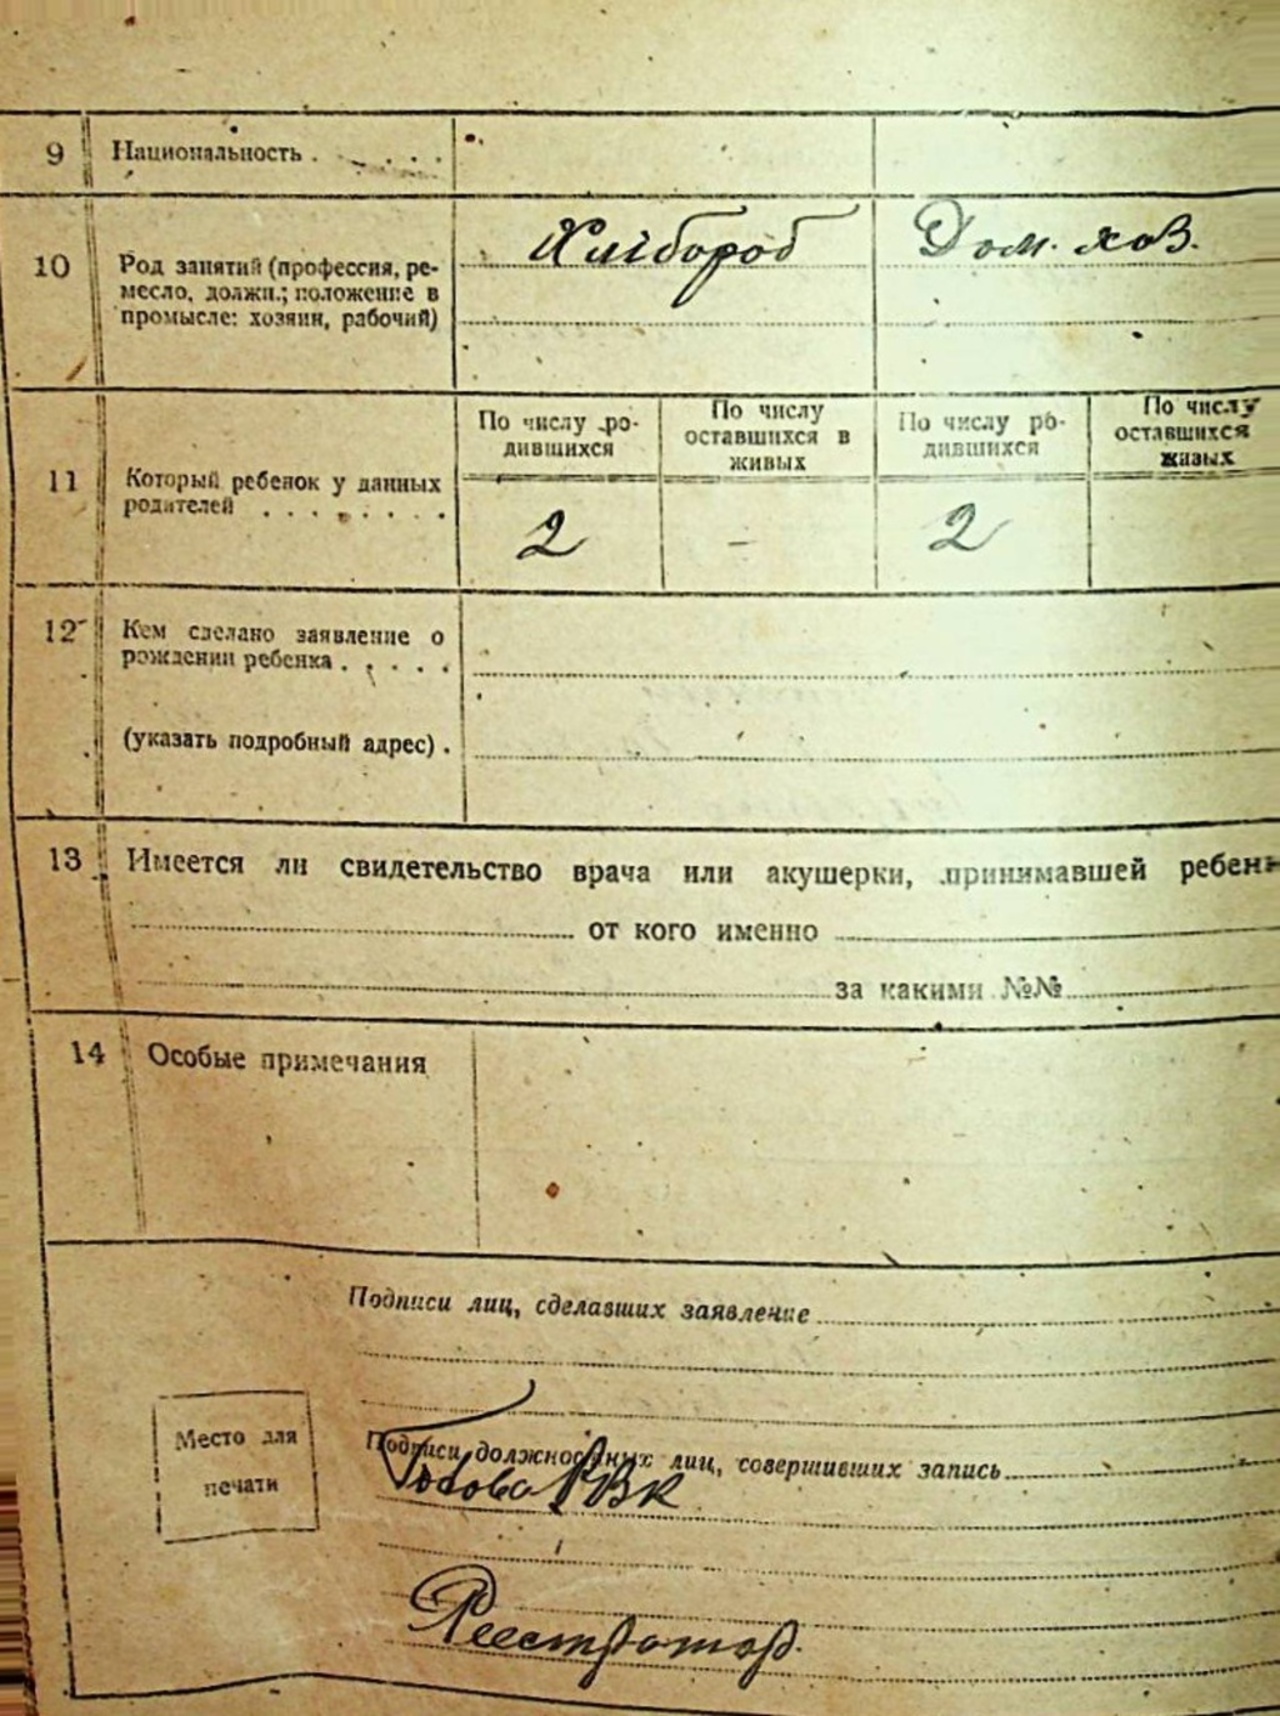 9 Национальность . . . . .
10 Род занятий (профессия, ре-
месло, должн.; положение в
промысле: хозяин, рабочий)
Хлібороб Дом. хоз.
11 Который ребенок у данных
родителей . . . . . . . .
По числу ро-
дившихся
По числу
оставшихся в
живых
По числу ро-
дившихся
По числу
оставшихся
живых
2 – 2
12 Кем сделано заявление о
рождении ребенка . . . . .
(указать подробный адрес) .
13 Имеется ли свидетельство врача или акушерки, принимавшей ребенк
от кого именно
за какими №№
14 Особые примечания
Подписи лиц, сделавших заявление
Место для
печати
Подписи должностных лиц, совершивших запись
Голова РВК
Реєстратор.